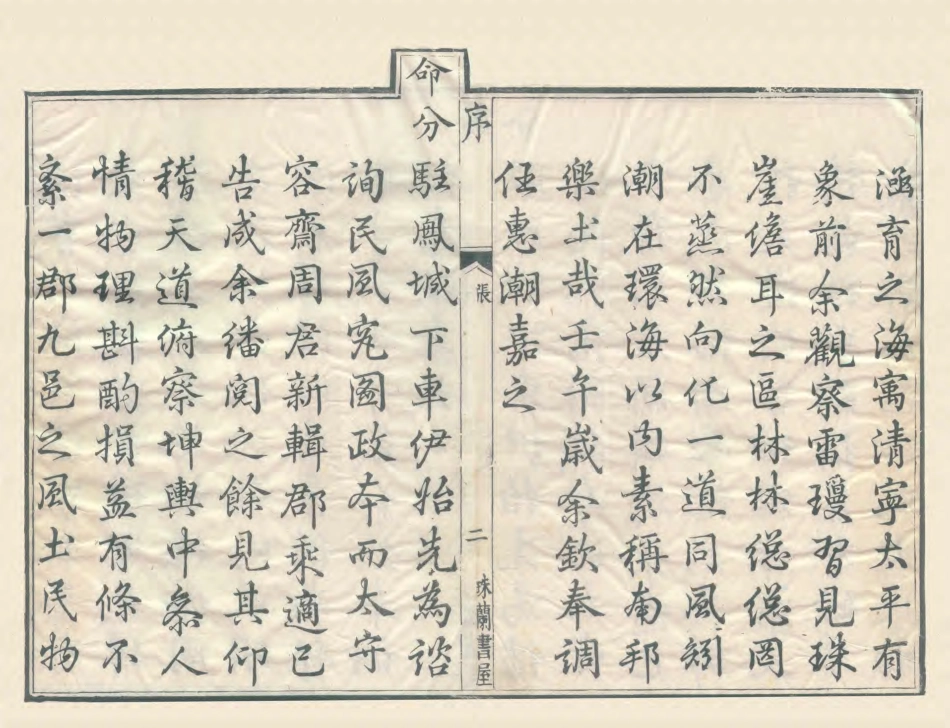 涵育之海寓清寧太平有
象前余觀察雷瓊習見珠
崖儋耳之區林林總總罔
不蒸然向化一道同風矧
潮在環海以內素稱南邦
樂土哉壬午歲余欽奉調
任惠潮嘉之
序
張
二
珠蘭書屋
命分
駐鳳城下車伊始先為諮
詢民風究圖政本而太守
容齋周君新輯郡乘適已
告成余繙閱之餘見其仰
稽天道俯察坤輿中參人
情物理斟酌損益有條不
紊一郡九邑之風土民物